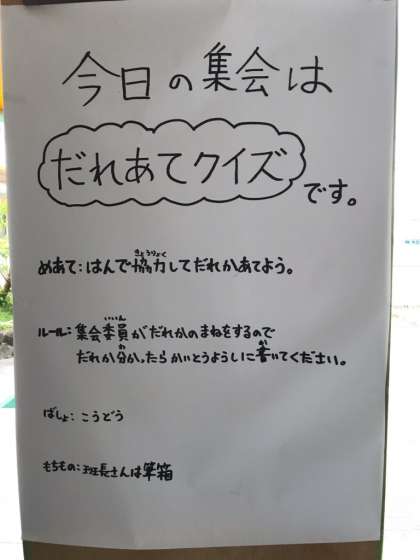 今日の集会は
だれあてクイズ
です。
めあて：はんで協力してだれかあてよう。
ルール：集会委員がだれかのまねをするので
だれか分かったらかいとうようしに書いてください。
ばしょ：こうどう
もちもの：班長さんは筆箱